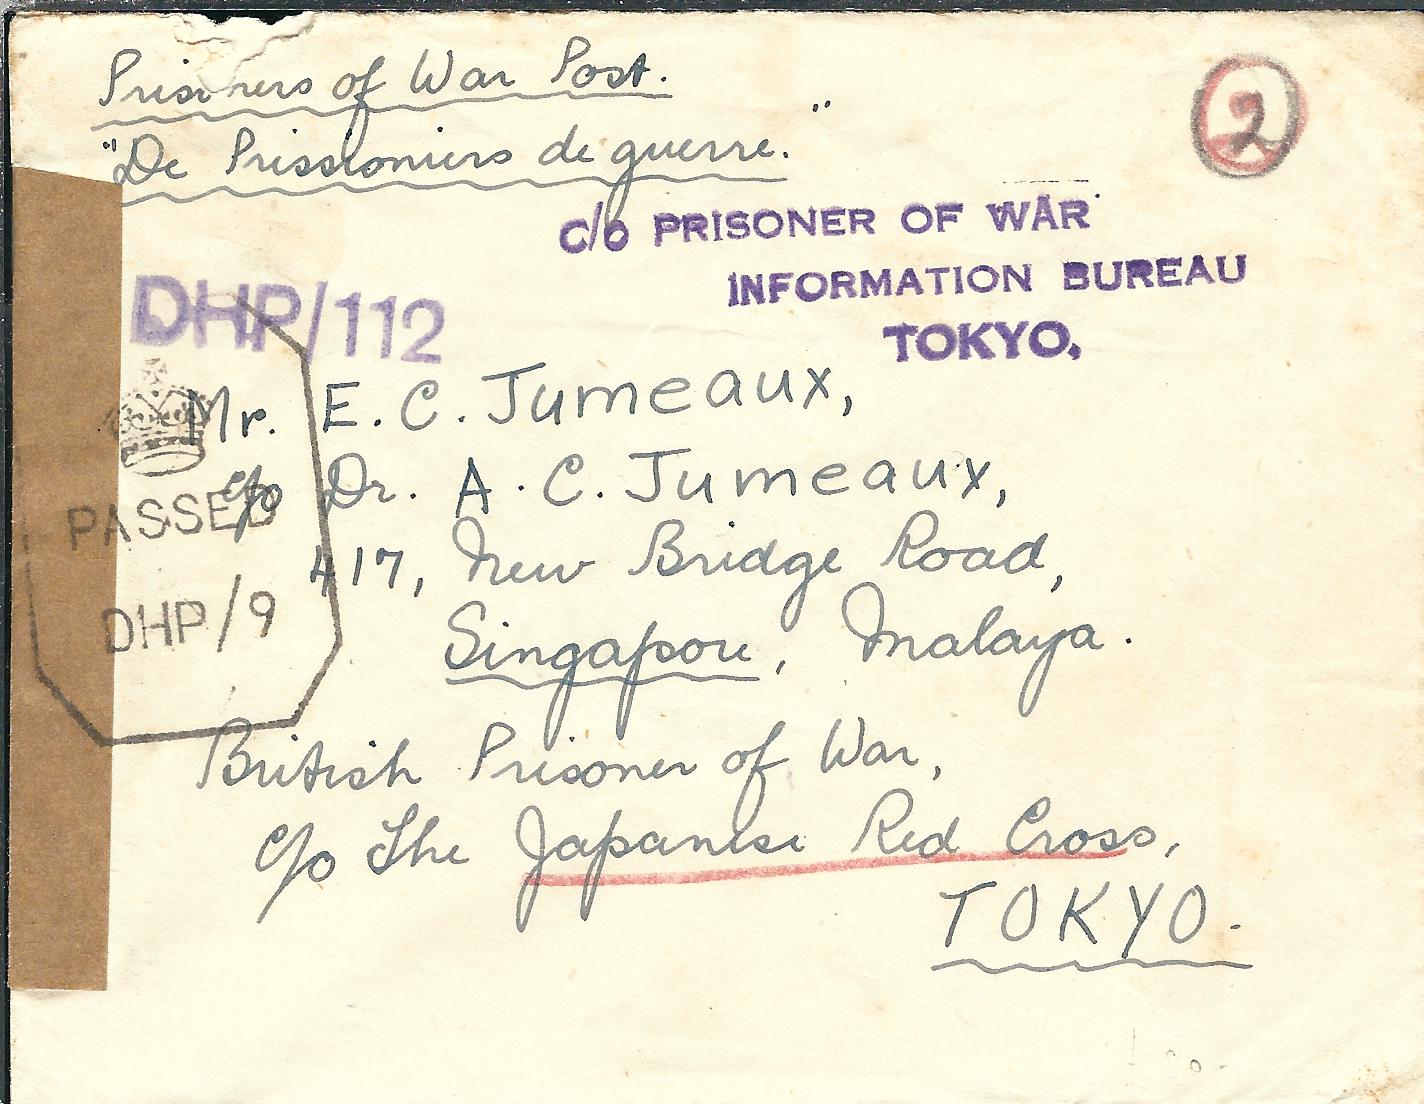 Prisoners of War Post.
"De Prissioniers de guerre."
2
c/o PRISONER OF WAR
INFORMATION BUREAU
TOKYO.
DHP/112
Mr. E. C. Jumeaux,
c/o Dr. A. C. Jumeaux,
417, New Bridge Road,
Singapore, Malaya.
PASSED
DHP/9
British Prisoner of War,
c/o The Japanese Red Cross,
TOKYO.